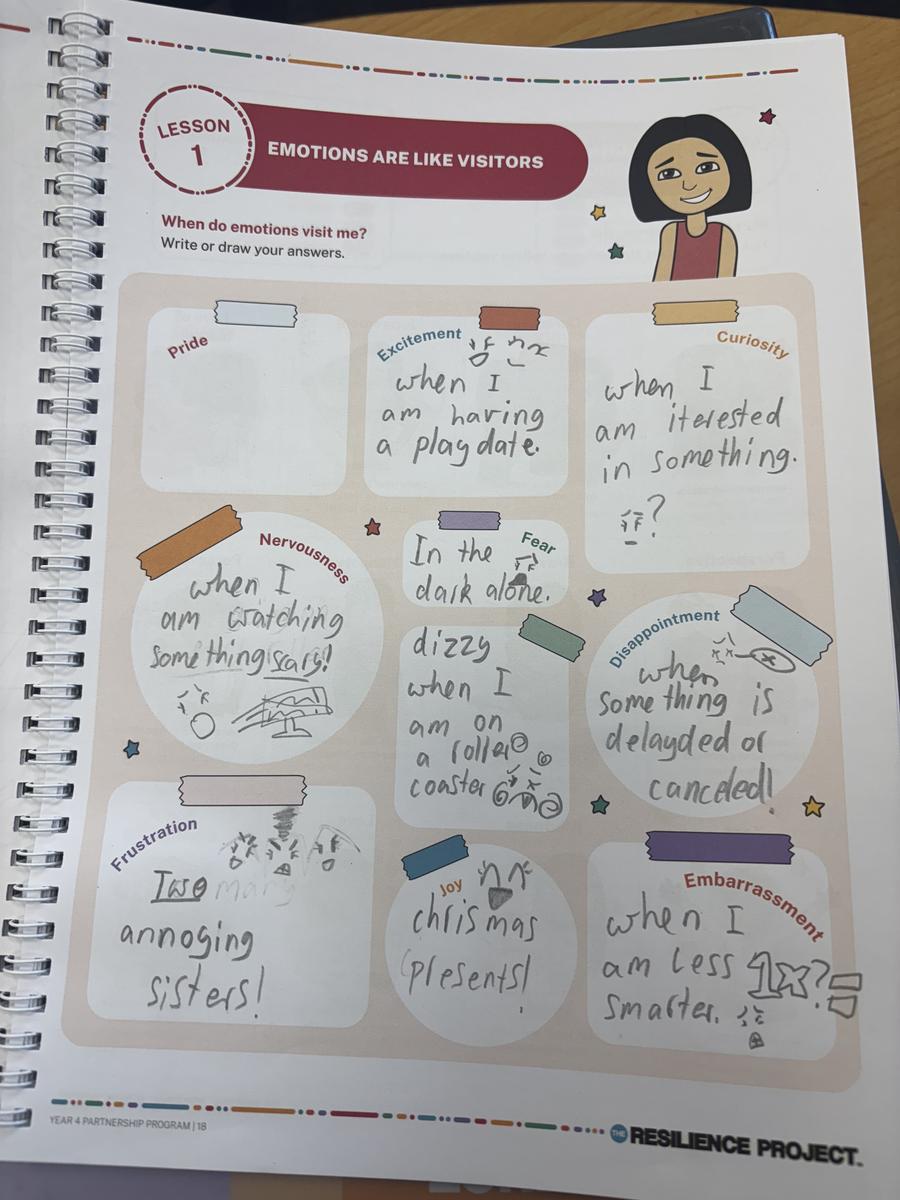 LESSON
1
EMOTIONS ARE LIKE VISITORS
When do emotions visit me?
Write or draw your answers.
Pride
Excitement
when I
am having
a playdate.
Curiosity
when I
am iterested
in something.
?
Nervousness
when I
am watching
something scary!
Fear
In the
dark alone.
dizzy
when I
am on
a roller
coaster
Disappointment
when
something is
delayded or
canceled!
Frustration
Two many
annoging
sisters!
Joy
chrismas
presents!
Embarrassment
when I
am less 1x?=
smarter.
YEAR 4 PARTNERSHIP PROGRAM | 18
THE RESILIENCE PROJECT.